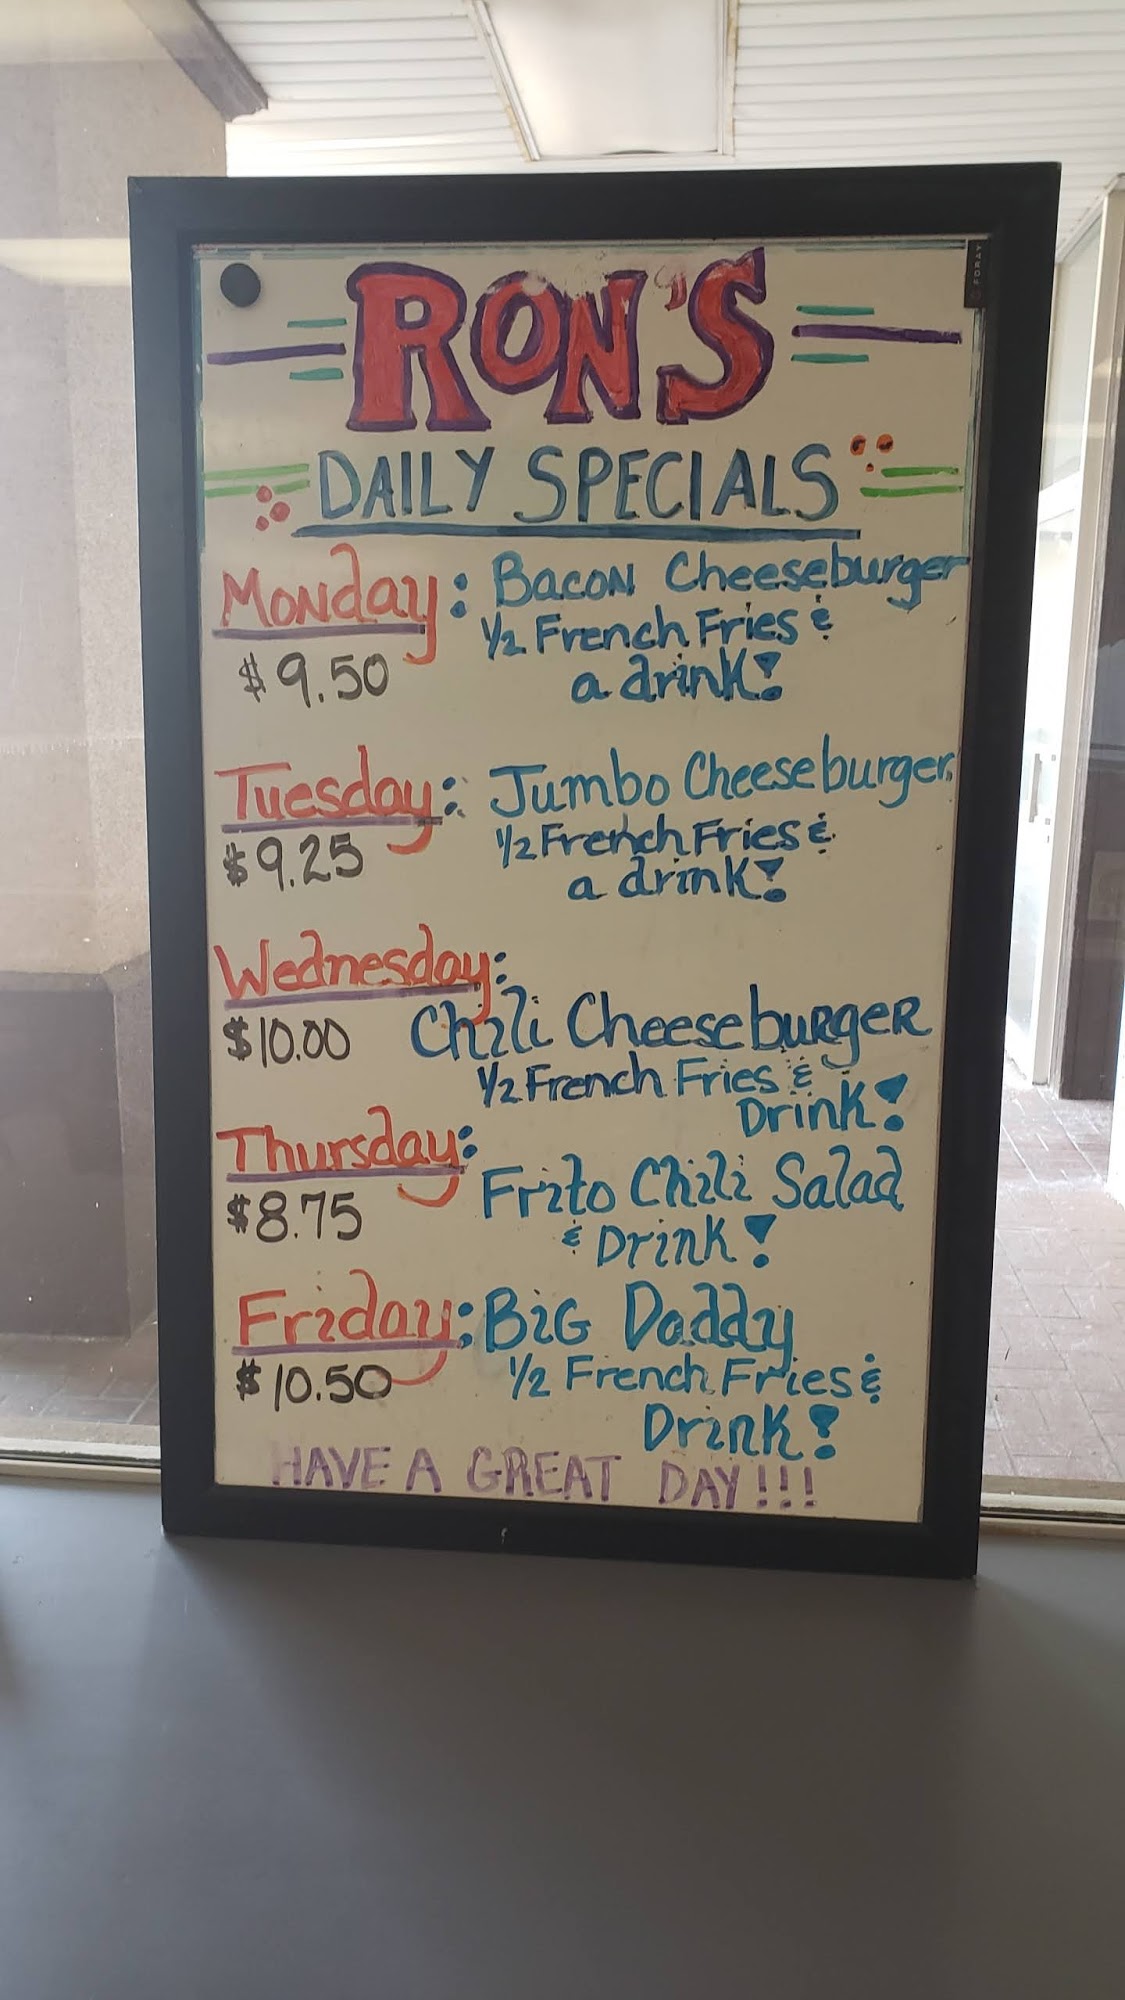 RON'S
DAILY SPECIALS
Monday: Bacon Cheeseburger
$9.50 1/2 French Fries &
a drink!
Tuesday: Jumbo Cheeseburger
$9.25 1/2 French Fries &
a drink!
Wednesday:
$10.00 Chili Cheeseburger
1/2 French Fries &
Drink!
Thursday:
$8.75 Frito Chili Salad
& Drink!
Friday: Big Daddy
$10.50 1/2 French Fries &
Drink!
HAVE A GREAT DAY!!!